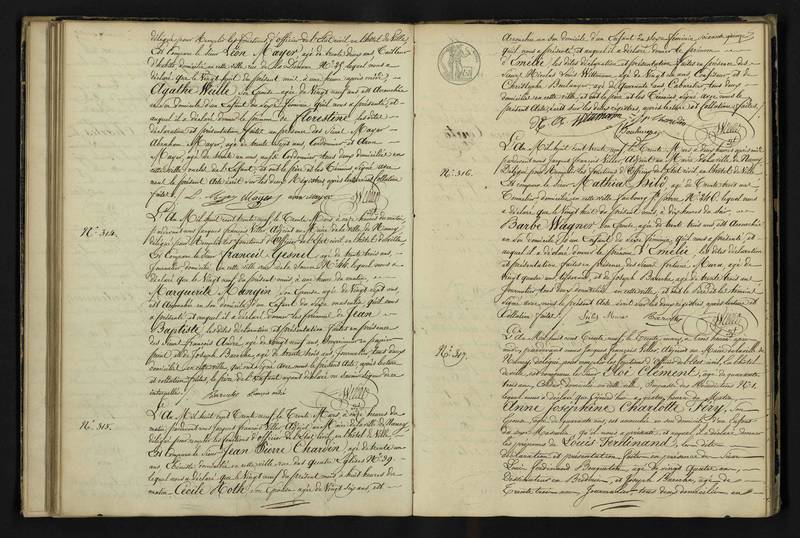 délégué pour remplir les fonctions d'officier de l'état civil en l'hôtel de Ville
Est comparu le Sieur Léon Mayer, agé de trente deux ans, Tailleur
d'habits domicilié en cette ville, rue de la Douane N° 35, lequel nous a
déclaré que le Vingt huit du présent mois, à une heure après midi,
Agathe Weille, son Epouse, agée de Vingt neuf ans est Accouchée
en son domicile d'un Enfant du Sexe féminin, qu'il nous a présenté, et
auquel il a déclaré donner le prénom de Florestine, les dites
déclaration et présentation faites en présence des Sieurs Mayer
Abraham Mayer, agé de trente ans, Cordonnier et Aron
Mayer, agé de trente un ans aussi Cordonnier tous deux domiciliés en
cette ville de l'Enfant, et ont le père et les témoins signé avec
nous le présent Acte écrit sur les deux Registres après lecture et Collation
faites. L. Mayer Mayer aron mayer
N° 314.
L'An Mil huit cent trente neuf, le Trente Mars, à onze heures du matin,
pardevant nous Jacques François Villers, Adjoint au Maire de la ville de Nancy,
délégué pour remplir les fonctions d'Officier de l'Etat civil en l'hôtel de ville
Est Comparu le Sieur François Gesnel, agé de trente trois ans,
Journalier domicilié en cette ville rue de la douane N° 44, lequel nous a
déclaré que le Vingt neuf du présent mois à une heure du matin
Marguerite Mangin, son Epouse agée de Vingt sept ans
est Accouchée en son domicile, d'un Enfant du Sexe masculin qu'il nous
a présenté et auquel il a déclaré donner les prénoms de Jean
Baptiste, les dites déclaration et présentation faites en présence
des Sieurs François André, agé de Vingt neuf ans, Imprimeur en papier
peint et de Joseph Barwke, agé de trente trois ans, Journalier, tous deux
domiciliés en cette ville, qui ont signé Avec nous le présent Acte, après lecture
et collation faites, le père de l'Enfant ayant déclaré ne savoir Signer de ce
interpellé.
N° 315.
L'An Mil huit cent Trente neuf le Trente Mars, à onze heures du
matin, pardevant nous Jacques François Villers, Adjoint au Maire de la ville de Nancy
délégué pour remplir les fonctions d'officier de l'Etat civil en l'hôtel de Ville,
Est Comparu le Sieur Jean Pierre Charvin, agé de trente un
ans, domicilié en cette ville, rue des quatre Eglises N° 39
lequel nous a déclaré que le Vingt neuf du présent mois, à huit heures du
matin, Cécile Noth, son Epouse, agée de Vingt six ans, est
Accouchée en son domicile d'un Enfant du Sexe féminin
qu'il nous a présenté et auquel il a déclaré donner le prénom
d'Emélie, les dites déclaration et présentation faites en présence des
Sieurs Nicolas Louis Willmann, agé de Vingt six ans Confiseur, et de
Christophe Boulanger, agé de Quarante ans, Cabaretier, tous deux
domiciliés en cette ville, et ont le père et les témoins Signé avec nous le
présent Acte, écrit sur les deux registres, après lecture et Collation faites.
N° 316.
L'An Mil huit cent trente neuf, le Trente Mars à deux heures après midi
pardevant nous Jacques François Villers, Adjoint au Maire de la ville de Nancy,
Délégué pour remplir les fonctions d'Officier de l'Etat civil en l'hôtel de Ville
Est Comparu le Sieur Mathias Bild, agé de Trente trois ans
domicilié en cette ville, faubourg St pierre N° 246, lequel nous
a déclaré que le Vingt huit du présent mois, à dix heures du soir
Barbe Wagner, son Epouse, agée de trente trois ans, est Accouchée
en son domicile, d'un Enfant du Sexe féminin, qu'il nous a présenté, et
auquel il a déclaré donner le prénom d'Emélie, les dites déclaration
et présentation faites en présence des Sieurs Marx, agé de
Vingt quatre ans, et de Joseph Barwke, agé de trente trois ans
Journalier tous deux domiciliés en cette ville, et ont les témoins
Signé avec nous le présent Acte, écrit sur les deux registres après lecture et
Collation faites.
N° 317.
L'An Mil huit cent Trente neuf, le Trente mars, à trois heures après
midi, pardevant nous Jacques François Villers, Adjoint au Maire de la ville de
Nancy, délégué pour remplir les fonctions d'Officier de l'Etat civil en l'hôtel
de ville, est comparu le Sieur Eloi Clément, agé de quarante
trois ans, domicilié en cette ville, N° 1,
lequel nous a déclaré que à quatre heures du Matin
Anne Josephine Charlotte Féry, Son
Epouse, agée de quarante ans, est accouchée en son domicile d'un Enfant
du Sexe Masculin, qu'il nous a présenté, et auquel il a déclaré donner
les prénoms de Louis Ferdinand, les dites
Déclaration et présentation faites en présence de Sieurs
Louis Ferdinand agé de vingt quatre ans,
Dessinateur en Broderies, et Joseph Barwke, agé de
Trente trois ans Journalier tous deux domiciliés en